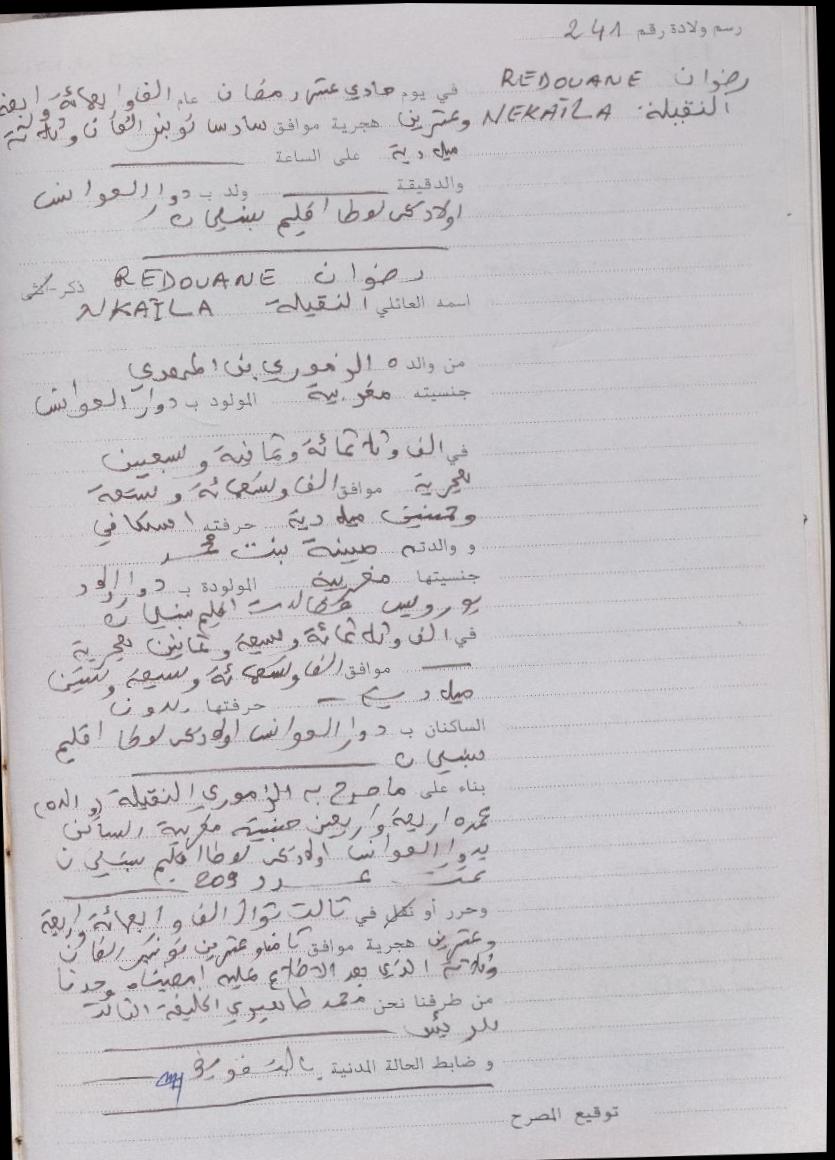 رسم ولادة رقم 241
رضوان REDOUANE
النقيلة NEKAÏLA
في يوم حادي عشر رمضان عام الف واربعمائة واربعة
وعشرين هجرية موافق سادس نونبر الفان وثلاثة
ميلادية على الساعة
والدقيقة ولد ب دوار العوانس
اولاد يحي لوطا اقليم بنسليمان
رضوان REDOUANE ذكر-انثى
اسمه العائلي النقيلة NKAÏLA
من والده الزموري بن المعطي
جنسيته مغربية المولود ب دوار العوانس
في الف وثلاثمائة وثمانية وسبعين
هجرية موافق الف وتسعمائة وتسعة
وخمسين ميلادية حرفته اسكافي
و والدته مينة بنت محمد
جنسيتها مغربية المولودة ب دوار اولاد
بورويس فضالات اقليم بنسليمان
في الف وثلاثمائة وسبعة وثمانين هجرية
موافق الف وتسعمائة وسبعة وستين
ميلادية حرفتها بدون
الساكنان ب دوار العوانس اولاد يحي لوطا اقليم
بنسليمان
بناء على ما صرح به الزموري النقيلة (والده)
عمره اربعة واربعين جنسيته مغربية الساكن
بدوار العوانس اولاد يحي لوطا اقليم بنسليمان
تحت عدد 209
وحرر أو نقل في ثالث شوال الف واربعمائة واربعة
وعشرين هجرية موافق ثامن وعشرين نونبر الفان
وثلاثة الذي بعد الاطلاع عليه امضيناه وحدنا
من طرفنا نحن محمد الخليفة الثالث
للرئيس
و ضابط الحالة المدنية بالتفويض
توقيع المصرح